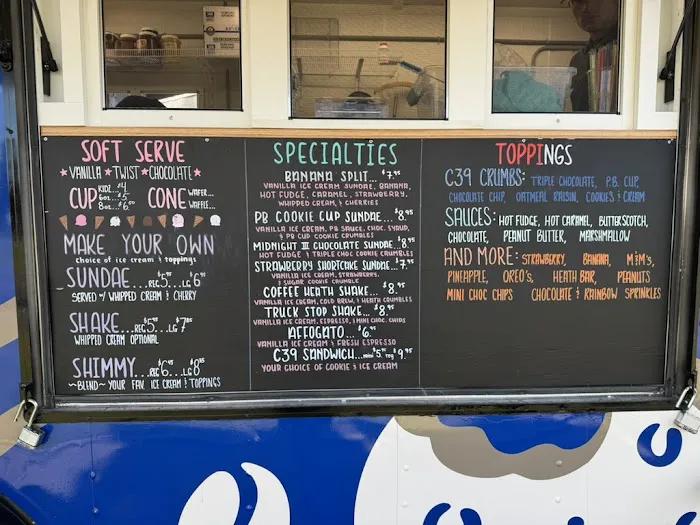 SOFT SERVE
VANILLA TWIST CHOCOLATE
CUP KIDZ...$4
6oz...5
8oz...$6.50
CONE WAFER...
WAFFLE...
MAKE YOUR OWN
choice of ice cream & toppings
SUNDAE...REG $5.95...LG $6.95
SERVED W/ WHIPPED CREAM & CHERRY
SHAKE...REG 5...LG $7
WHIPPED CREAM OPTIONAL
SHIMMY...REG $6...LG $8
~BLEND~ YOUR FAV. ICE CREAM & TOPPINGS
SPECIALTIES
BANANA SPLIT...$7.95
VANILLA ICE CREAM SUNDAE, BANANA,
HOT FUDGE, CARAMEL, STRAWBERRY,
WHIPPED CREAM, & CHERRIES
PB COOKIE CUP SUNDAE...$8.95
VANILLA ICE CREAM, PB SAUCE, CHOC. SYRUP,
& PB CUP COOKIE CRUMBLES
MIDNIGHT III CHOCOLATE SUNDAE...$8.95
HOT FUDGE & TRIPLE CHOC COOKIE CRUMBLES
STRAWBERRY SHORTCAKE SUNDAE...$7.95
VANILLA ICE CREAM, STRAWBERRY,
& SUGAR COOKIE CRUMBLE
COFFEE HEATH SHAKE...$8.95
VANILLA ICE CREAM, COLD BREW, & HEATH CRUMBLES
TRUCK STOP SHAKE...$8.95
VANILLA ICE CREAM, ESPRESSO, & MINI CHOC. CHIPS
AFFOGATO...$6.95
VANILLA ICE CREAM & FRESH ESPRESSO
C39 SANDWICH...MINI $5.95 REG $9.95
YOUR CHOICE OF COOKIE & ICE CREAM
TOPPINGS
C39 CRUMBS: TRIPLE CHOCOLATE, P.B. CUP,
CHOCOLATE CHIP, OATMEAL RAISIN, COOKIES & CREAM
SAUCES: HOT FUDGE, HOT CARAMEL, BUTTERSCOTCH,
CHOCOLATE, PEANUT BUTTER, MARSHMALLOW
AND MORE: STRAWBERRY, BANANA, M&M'S,
PINEAPPLE, OREO'S, HEATH BAR, PEANUTS
MINI CHOC CHIPS CHOCOLATE & RAINBOW SPRINKLES